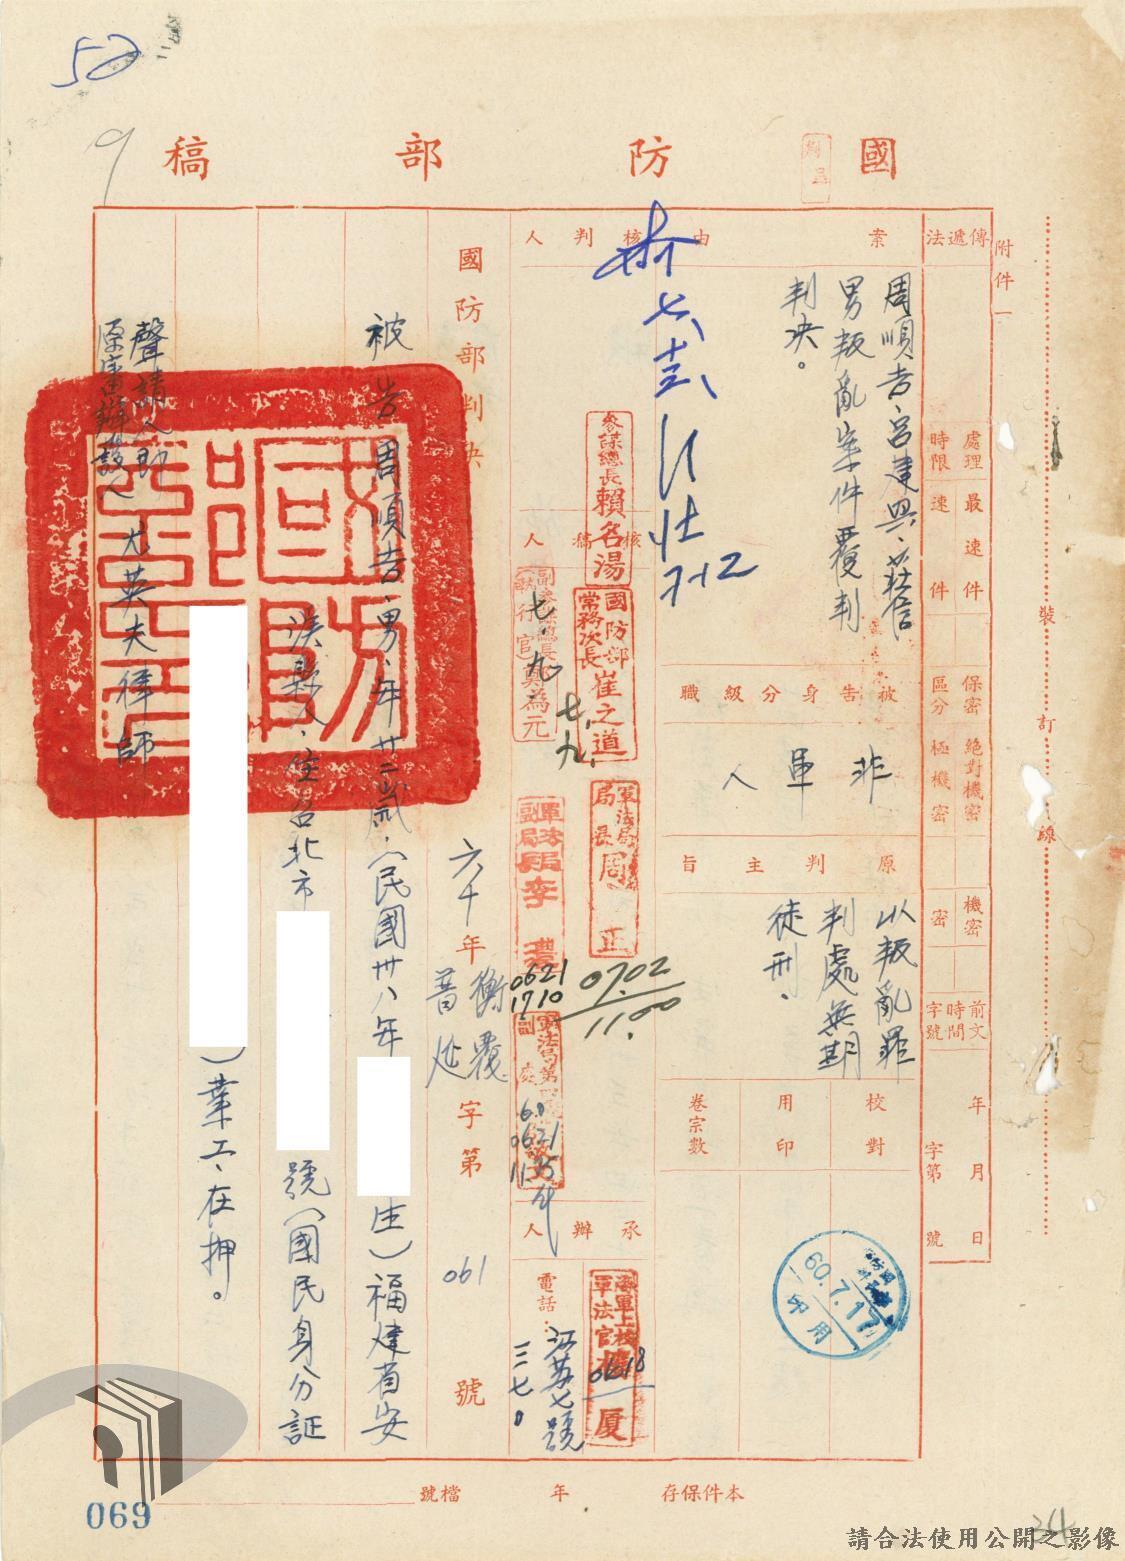 52
9
國防部稿
附件一
傳遞法
處理時限
最速件
速件
保密區分
絕對機密
極機密
機密
密
前文時間字號
年月日
字第號
案由
周順吉、宮建興、莊信男叛亂案件覆判判決。
被告身分級職
非軍人
原判主旨
以叛亂罪判處無期徒刑.
校對
用印
卷宗數
60.7.17
用印
核判人
7.12
參謀總長賴名湯
國防部常務次長崔之道
軍法局局長周正
0702
1100
核稿人
執行官
七.九.
七.九.
軍法局副局長李
0621
1710
0621
承辦人
海軍上校軍法官
0618
電話:
江蘇七號
三二七0
國防部判決
六十年
覆
普
字第061號
被告周順吉、男、年廿二歲、(民國卅八年
生)福建省安
溪縣人、住台北市
號(國民身分証
)業工、在押。
聲請人即
原審辯護人
尤英夫律師
裝訂線
本件保存年
檔號
069
請合法使用公開之影像